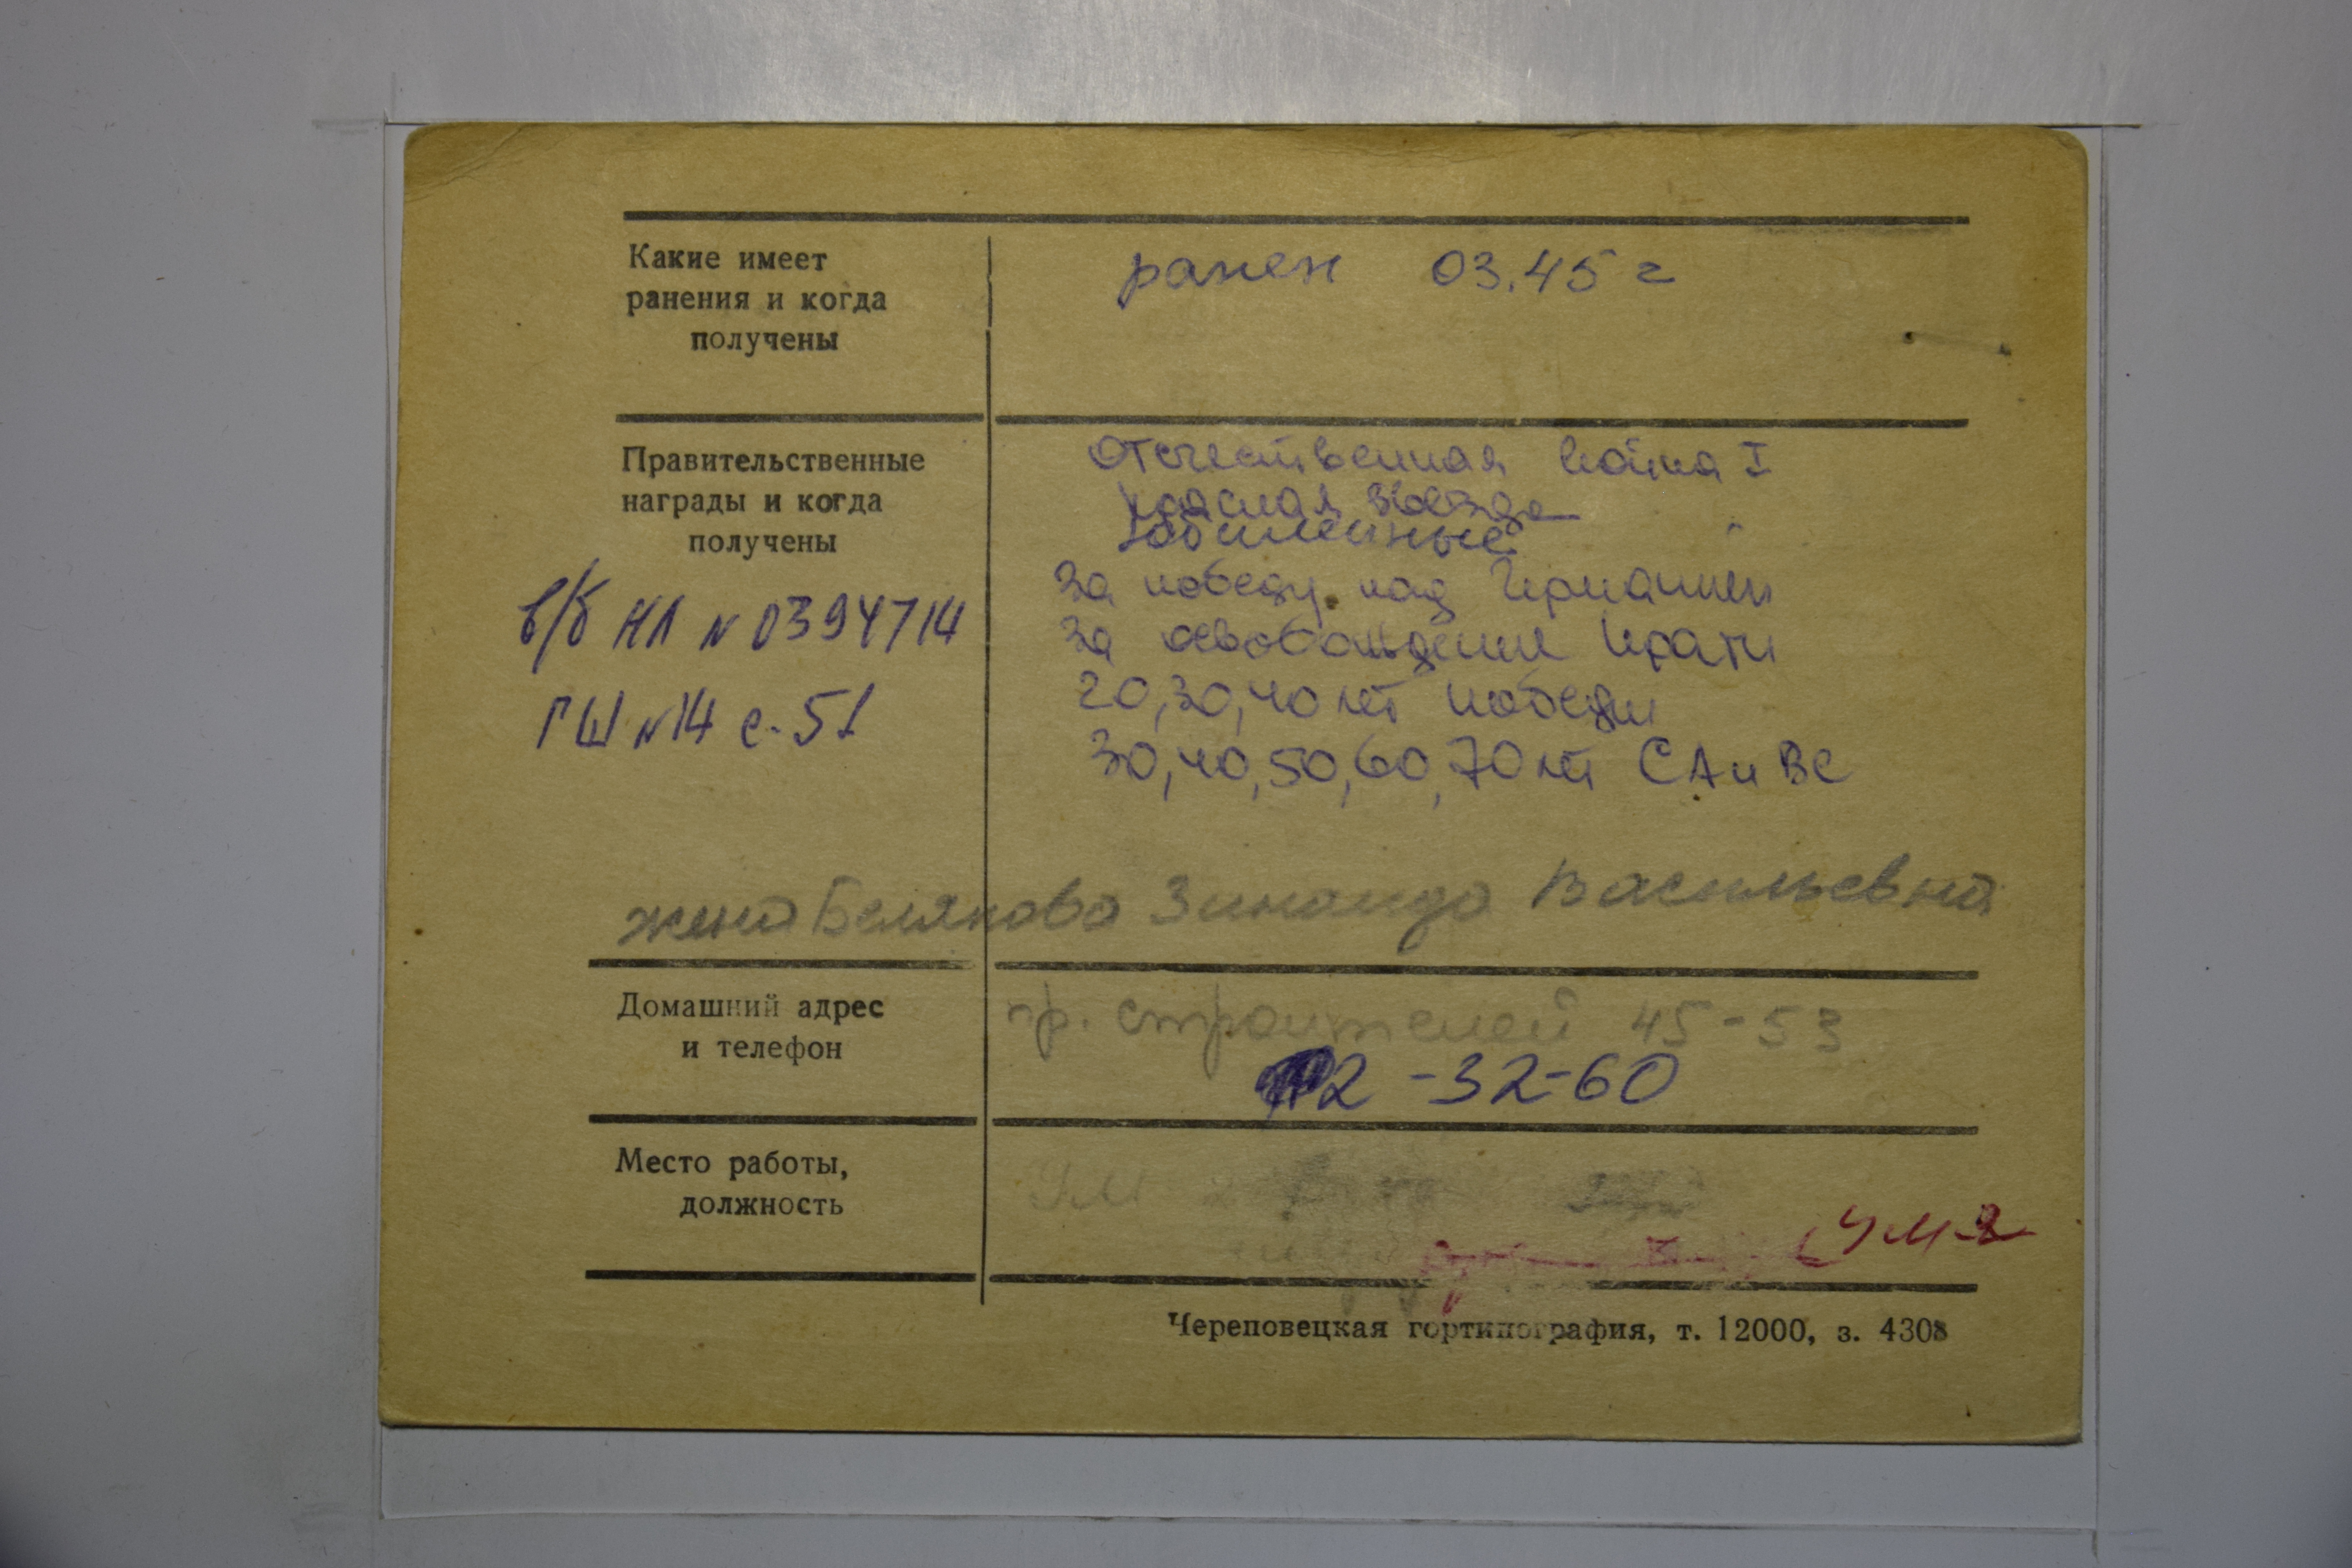 Какие имеет
ранения и когда
получены
ранен 03.45 г
Правительственные
награды и когда
получены
в/б НЛ N 0394714
ГШ N 14 с. 51
Отечественная война I
Красная звезда
Юбилейные
За победу над Германией
За освобождение Праги
20, 30, 40 лет победы
30, 40, 50, 60, 70 лет СА и ВС
жена Белякова Зинаида Васильевна
Домашний адрес
и телефон
пр. строителей 45-53
2-32-60
Место работы,
должность
Череповецкая гортипография, т. 12000, з. 4308